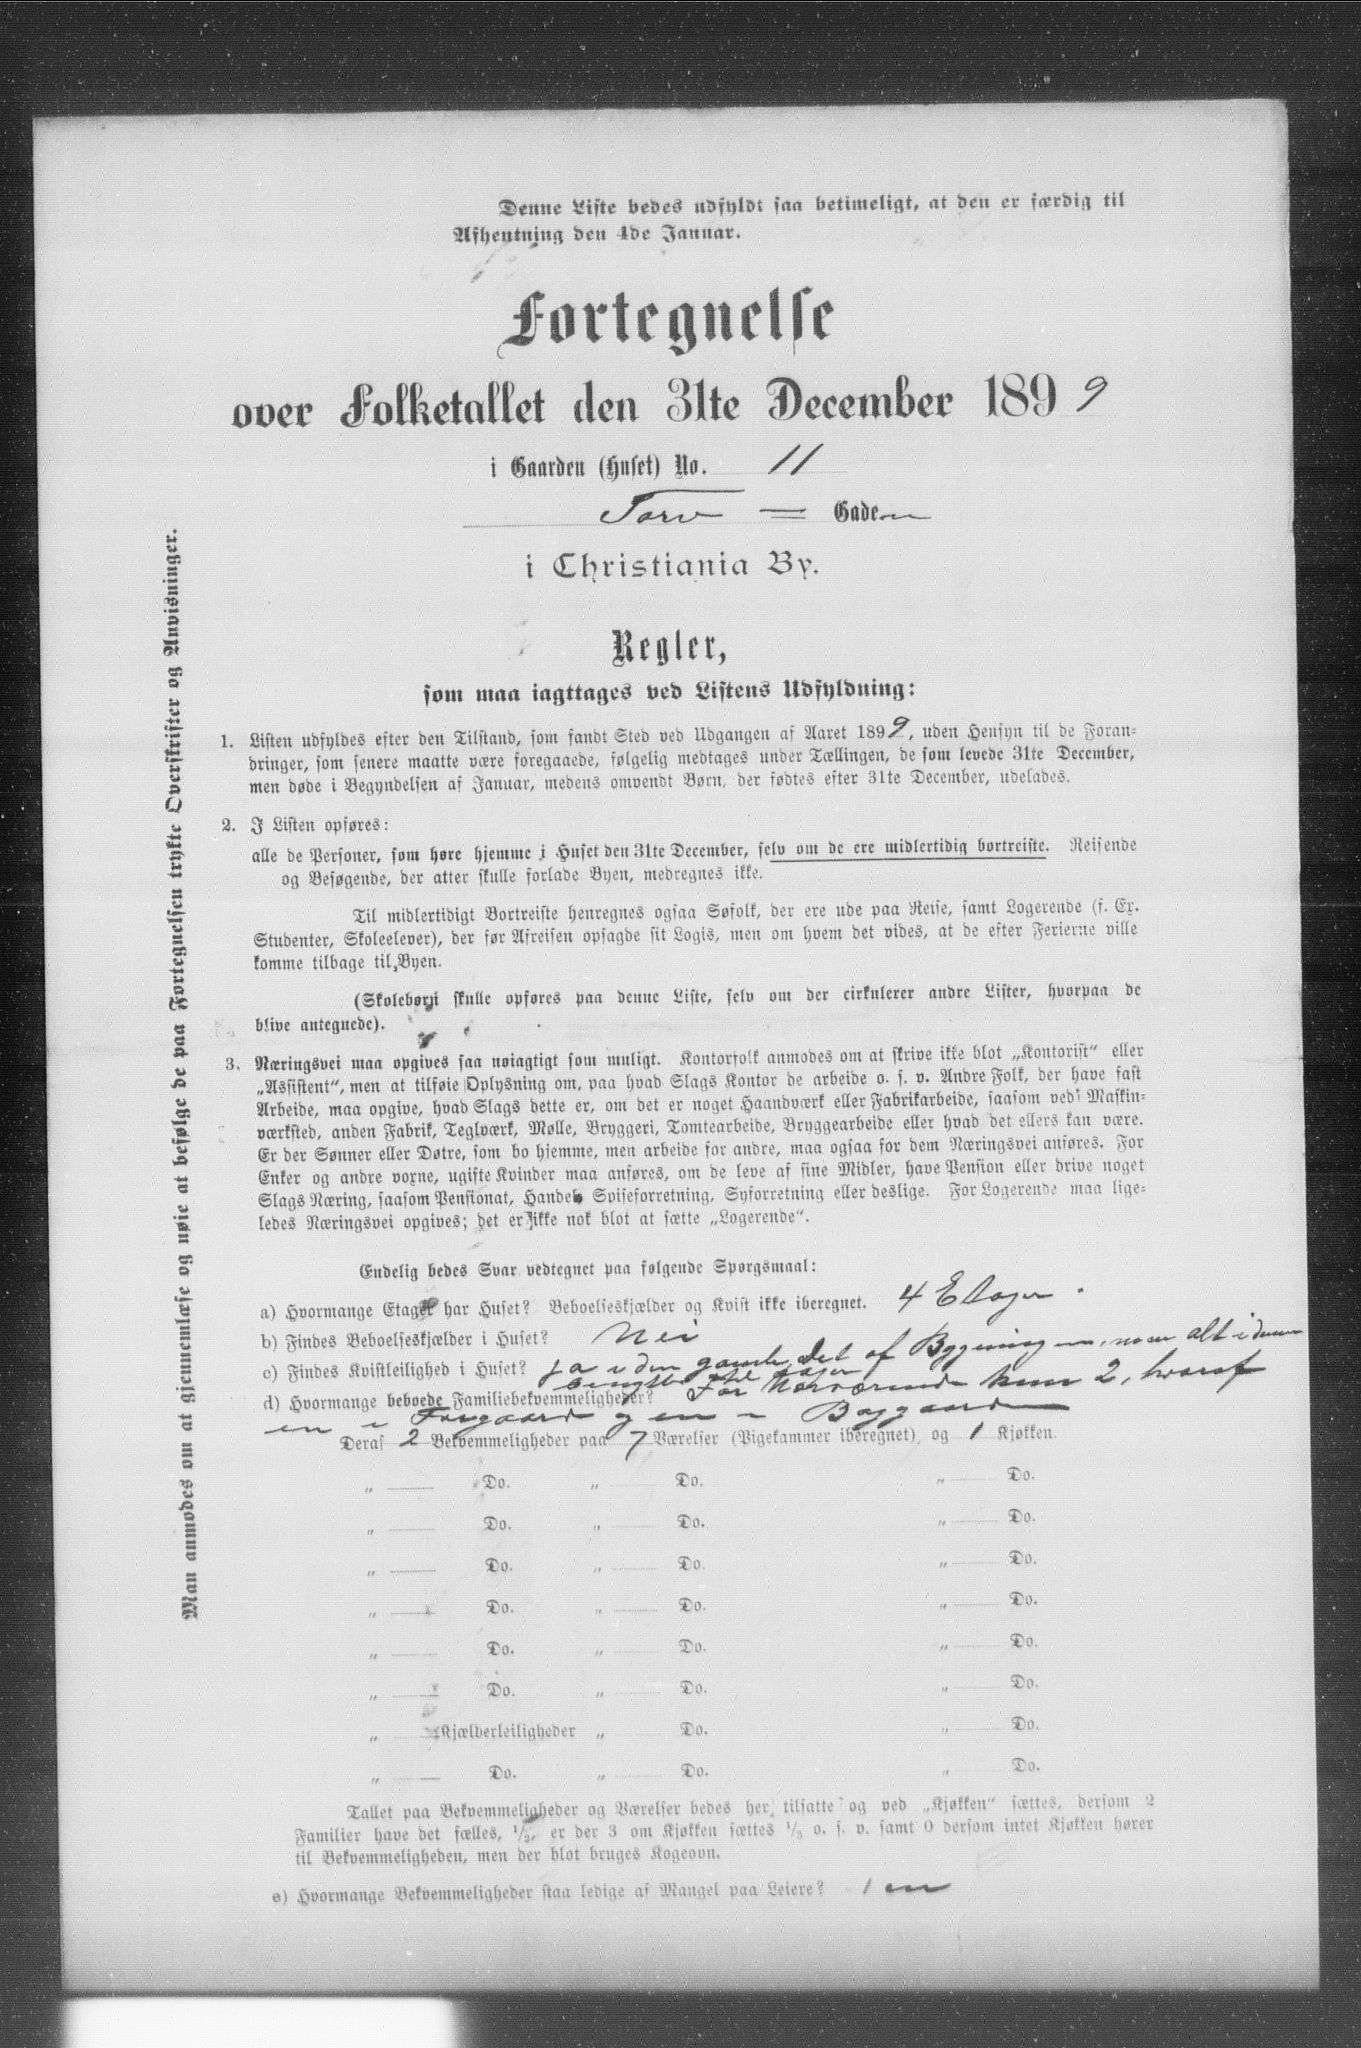 Denne Liste bedes udfyldt saa betimeligt, at den er færdig til
Afhentning den 4de Januar.
Fortegnelse
over Folketallet den 31te December 1899
i Gaarden (Huset) No. 11
Torv = Gaden
i Christiania By.
Regler,
som maa iagttages ved Listens Udfyldning:
1. Listen udfyldes efter den Tilstand, som fandt Sted ved Udgangen af Aaret 1899, uden Hensyn til de Foran-
dringer, som senere maatte være foregaaede, følgelig medtages under Tællingen, de som levede 31te December,
men døde i Begyndelsen af Januar, medens omvendt Børn, der fødtes efter 31te December, udelades.
2. I Listen opføres:
alle de Personer, som høre hjemme i Huset den 31te December, selv om de ere midlertidig bortreiste. Reisende
og Besøgende, der atter skulle forlade Byen, medregnes ikke.
Til midlertidigt Bortreiste henregnes ogsaa Søfolk, der ere ude paa Reise, samt Logerende (f. Ex.
Studenter, Skoleelever), der før Afreisen opsagde sit Logis, men om hvem det vides, at de efter Ferierne ville
komme tilbage til Byen.
(Skolebørn skulle opføres paa denne Liste, selv om der cirkulerer andre Lister, hvorpaa de
blive antegnede).
3. Næringsvei maa opgives saa nøiagtigt som muligt. Kontorfolk anmodes om at skrive ikke blot „Kontorist“ eller
„Assistent“, men at tilføie Oplysning om, paa hvad Slags Kontor de arbeide o. s. v. Andre Folk, der have fast
Arbeide, maa opgive, hvad Slags dette er, om det er noget Haandværk eller Fabrikarbeide, saasom ved Maskin-
værksted, anden Fabrik, Teglværk, Mølle, Bryggeri, Tomtearbeide, Bryggearbeide eller hvad det ellers kan være.
Er der Sønner eller Døtre, som bo hjemme, men arbeide for andre, maa ogsaa for dem Næringsvei anføres. For
Enker og andre voxne, ugifte Kvinder maa anføres, om de leve af sine Midler, have Pension eller drive noget
Slags Næring, saasom Pensionat, Handel, Spiseforretning, Syforretning eller deslige. For Logerende maa lige-
ledes Næringsvei opgives; det er ikke nok blot at sætte „Logerende“.
Endelig bedes Svar vedtegnet paa følgende Spørgsmaal:
a) Hvormange Etager har Huset? Beboelseskjælder og Kvist ikke iberegnet. 4 Etager.
b) Findes Beboelseskjælder i Huset? Nei
c) Findes Kvistleilighed i Huset? Ja i den gamle Del af Bygningen, men alt i denne
benyttes til
d) Hvormange beboede Familiebekvemmeligheder? For Nærværende kun 2, hvoraf
en i Forgaard og en i Baggaarden
Deraf 2 Bekvemmeligheder paa 7 Værelser (Pigekammer iberegnet) og 1 Kjøkken.
„ Do. „ Do. „ Do.
„ Do. „ Do. „ Do.
„ Do. „ Do. „ Do.
„ Do. „ Do. „ Do.
„ Do. „ Do. „ Do.
„ Do. „ Do. „ Do.
„ Kjælderleiligheder „ Do. „ Do.
„ Do. „ Do. „ Do.
Tallet paa Bekvemmeligheder og Værelser bedes her tilsatte og ved „Kjøkken“ sættes, dersom 2
Familier have det fælles, 1/2, er der 3 om Kjøkken sættes 1/3 o. s. v. samt 0 dersom intet Kjøkken hører
til Bekvemmeligheden, men der blot bruges Kogeovn.
e) Hvormange Bekvemmeligheder staa ledige af Mangel paa Leiere? 1 en
Man anmodes om at gjennemlæse og nøie at befølge de paa Fortegnelsen trykte Overskrifter og Anvisninger.